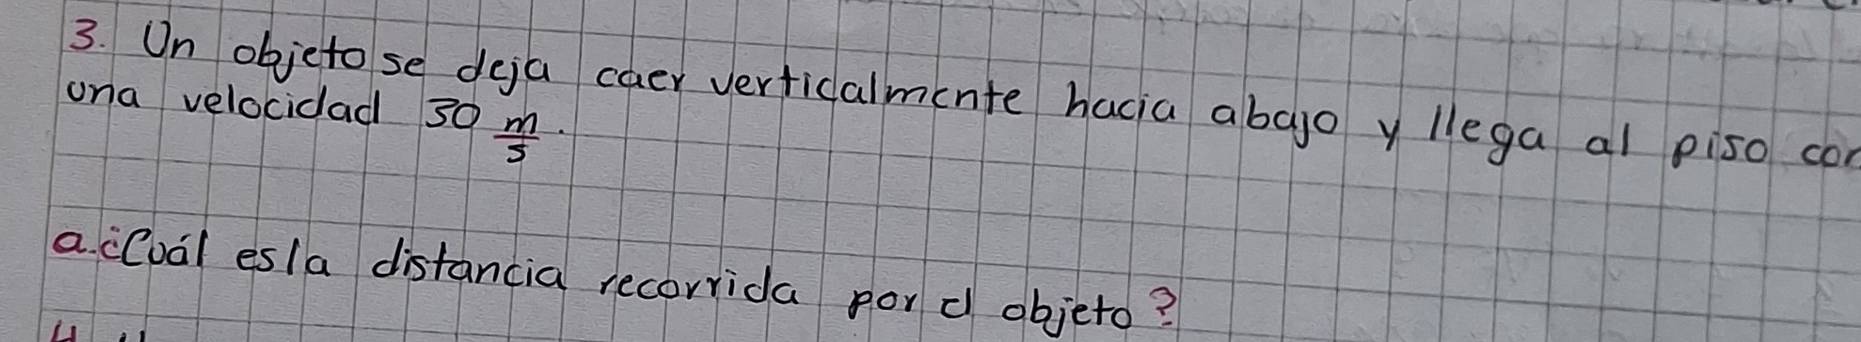 3. Un objeto se deja caer verticalmente hacia abajo y llega al piso con
una velocidad 30 m/s.
a. ¿Cuál es la distancia recorrida por el objeto?